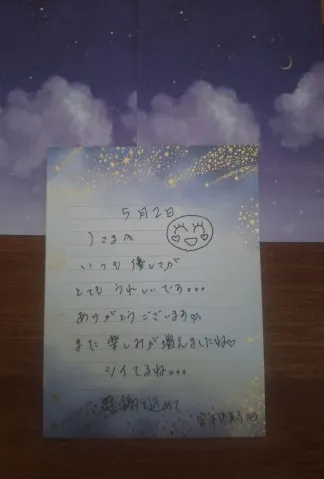 5月2日
うさまm
いつも優しさが
とてもうれしいです。。。
ありがとうございます♡
また楽しみが増えましたね♡
ツイてるね。。。
感謝を込めて